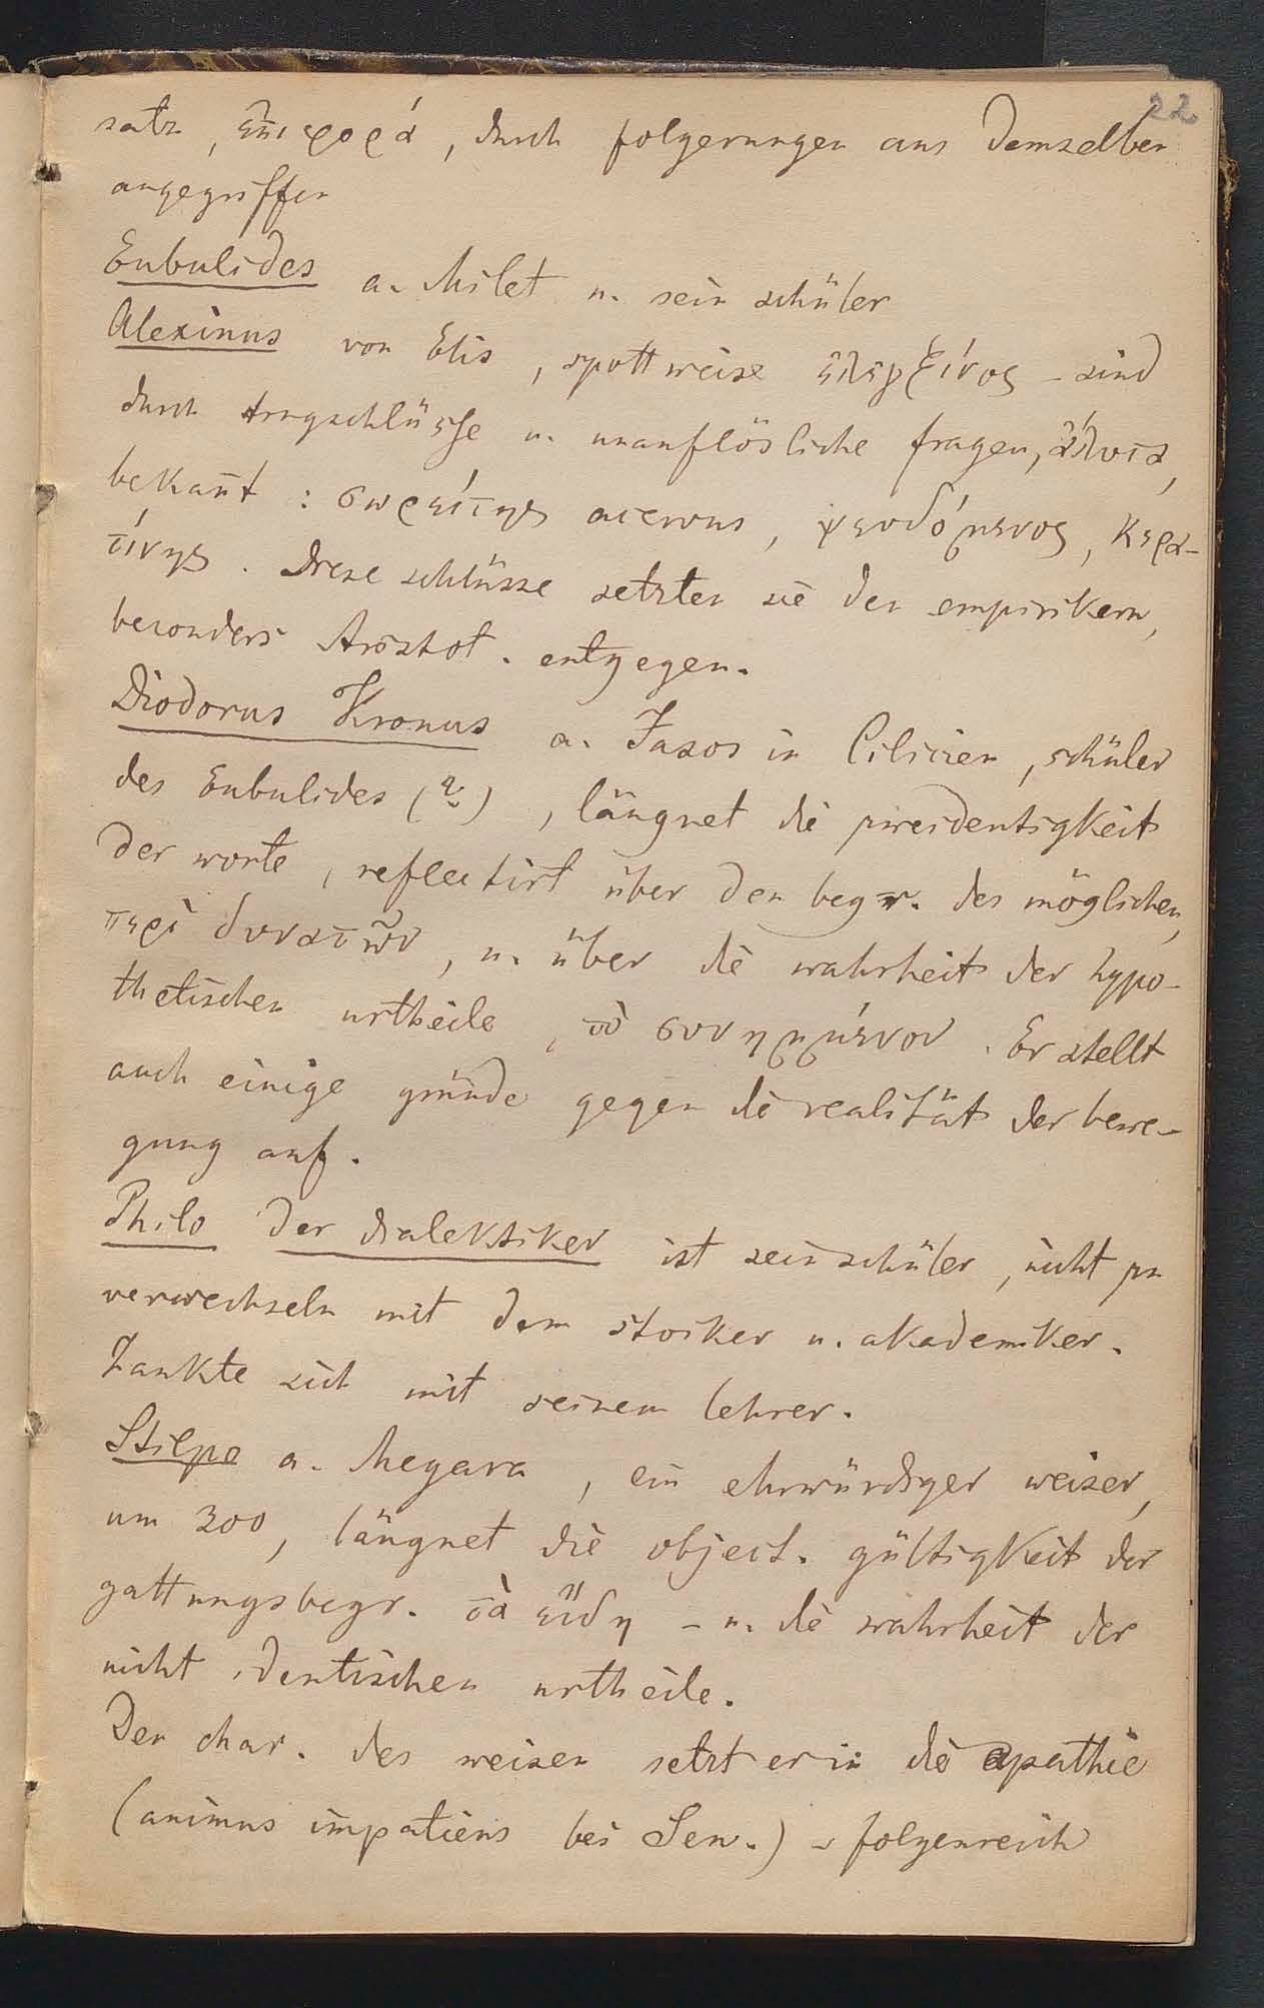 22
satz, ἐπιφορά, durch folgerungen aus demselben
angegriffen
Eubulides a. Milet u. sein schüler
Alexinus von Elis, spottweise ἐλεγξῖνος – sind
durch trugschlüsse u. unauflösliche fragen, ἄλυτα,
bekañt : σωρείτης acervus, ψευδόμενος, κερα-
τίνης. Diese schlüsse setzten sie den empirikern,
besonders Aristot. entgegen.
Diodorus Kronus a. Jasos in Cilicien, schüler
des Eubulides (?), läugnet die zweideutigkeit
der worte, reflectirt über den begr. des möglichen,
περὶ δυνατῶν, u. über die wahrheit der hypo-
thetischen urtheile, τὸ συνημμένον. Er stellt
auch einige gründe gegen die realität der bewe-
gung auf.
Philo der dialektiker ist sein schüler, nicht zu
verwechseln mit dem stoiker u. akademiker.
Zankte sich mit seinem lehrer.
Stilpo a. Megara, ein ehrwürdiger weiser,
um 300, läugnet die object. gültigkeit der
gattungsbegr. τὰ εἴδη – u. die wahrheit der
nicht identischen urtheile.
Den char. des weisen setzt er in die apathie
(animus impatiens bei Sen.) – folgenreich